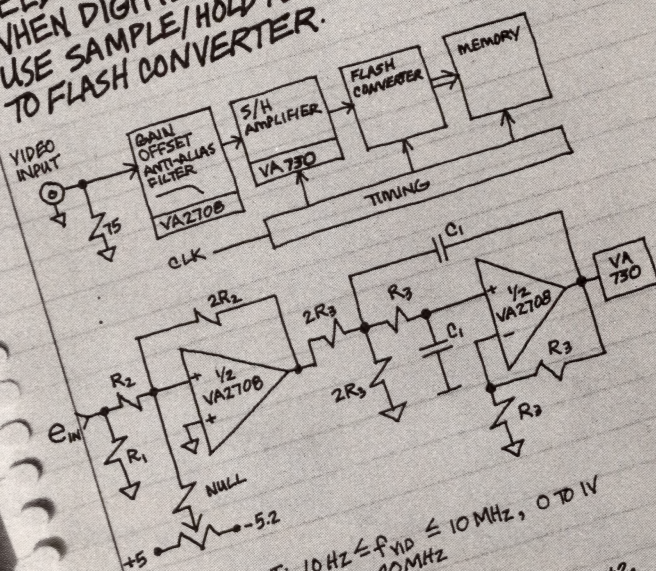 WHEN
USE SAMPLE/HOLD
TO FLASH CONVERTER.
VIDEO
INPUT
75
GAIN
OFFSET
ANTI-ALIAS
FILTER
VA2708
S/H
AMPLIFIER
VA730
FLASH
CONVERTER
MEMORY
TIMING
CLK
2R2
R2
eIN
R1
+
+
1/2
VA2708
NULL
+5
-5.2
2R3
R3
2R3
C1
C1
+
-
1/2
VA2708
R3
R3
VA
730
10 Hz ≤ fVID ≤ 10 MHz, 0 TO 1V